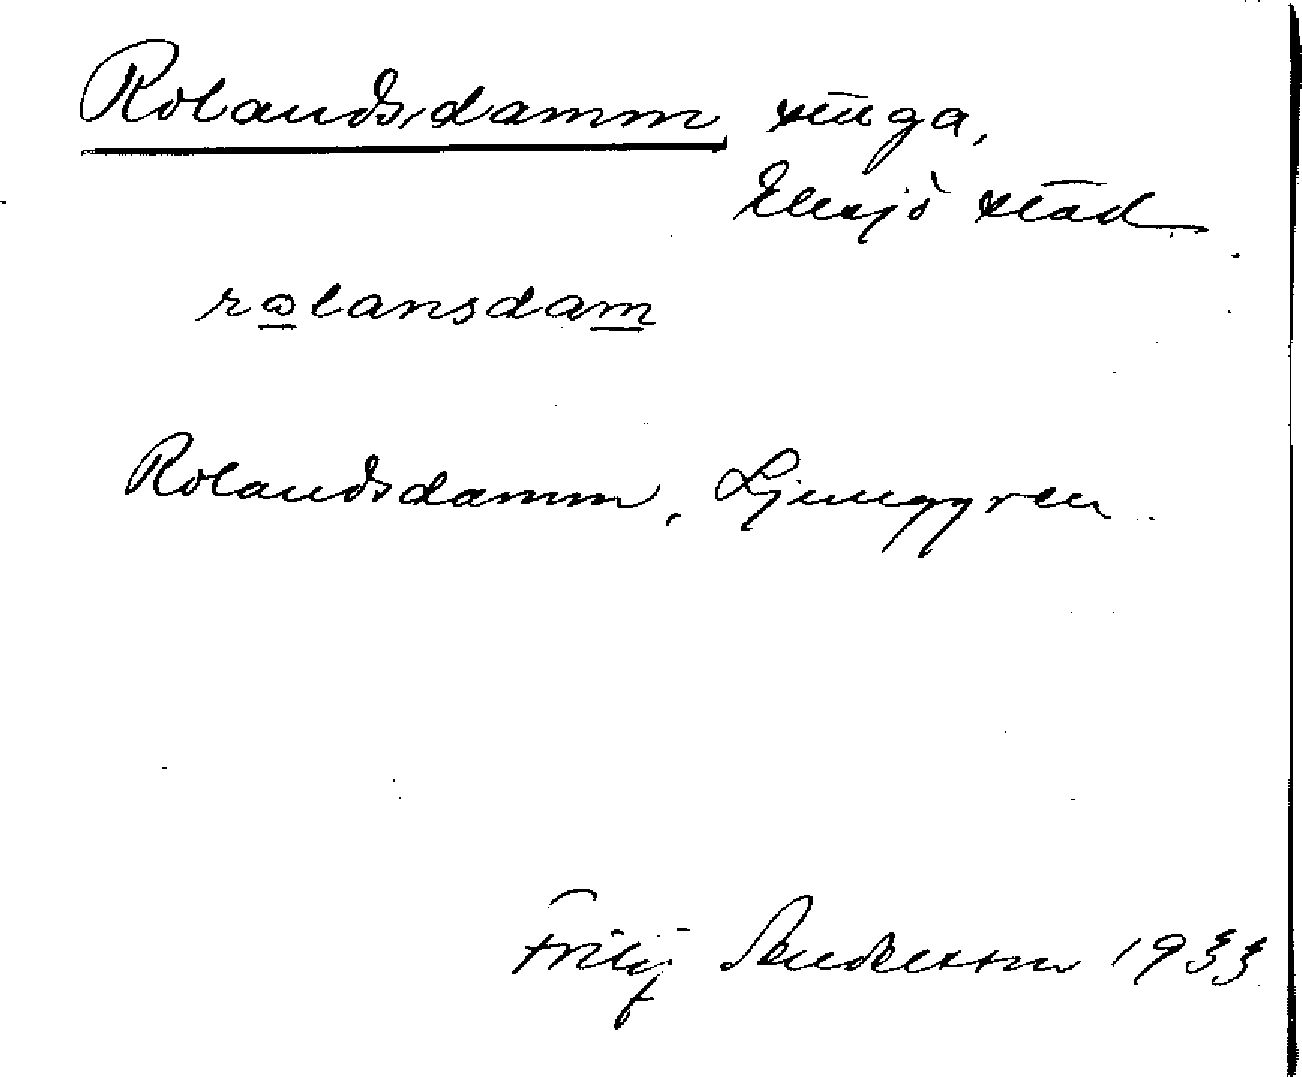 Rolandsdamm, stuga,
Eksjö stad
rωlansdam
Rolandsdamm, Ljunggren.
Fritjof Andersson 1933